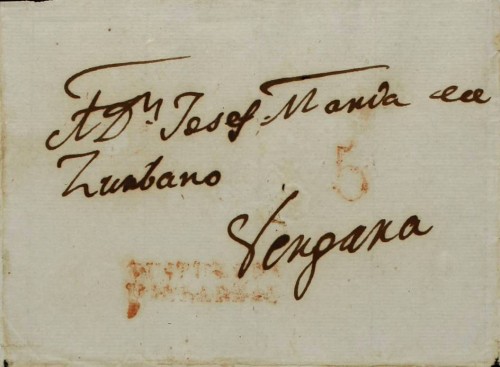 A Dn Josef Maria de
Zurbano
5
Vergara